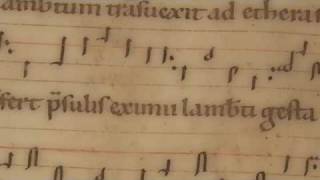 ambtum trasuexit ad etheras
fert p̄sulis eximii lamb̄ti gesta